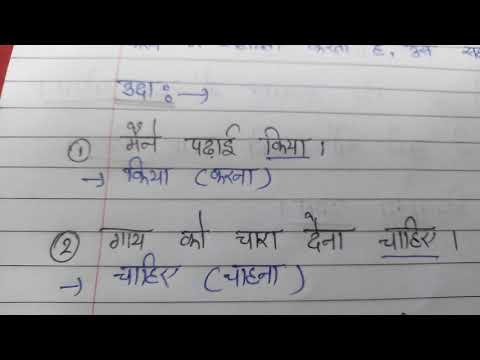 करता है, उस
उदा :→
① मैंने पढ़ाई किया ।
→ किया (करना)
② गाय को चारा देना चाहिए ।
→ चाहिए (चाहना)